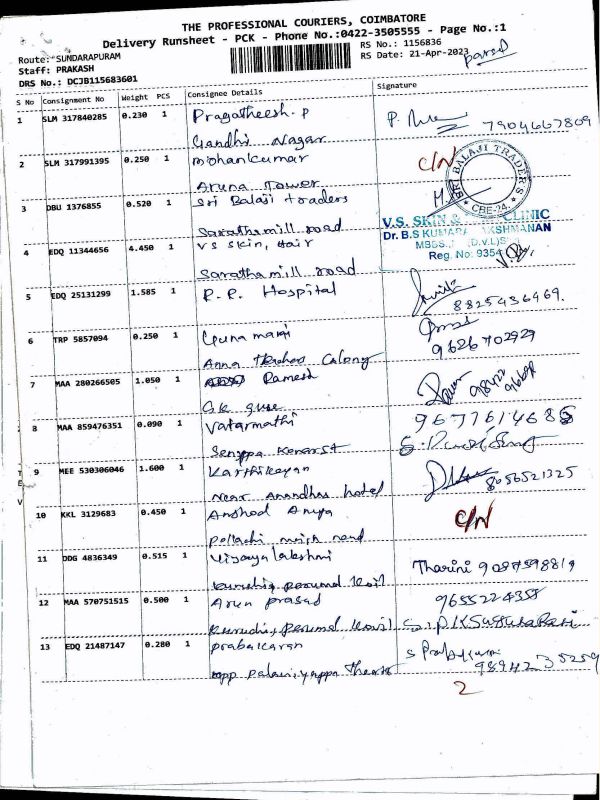 THE PROFESSIONAL COURIERS, COIMBATORE
Delivery Runsheet - PCK - Phone No.:0422-3505555 - Page No.:1
Route: SUNDARAPURAM
RS No.: 1156836
Staff: PRAKASH
RS Date: 21-Apr-2023
DRS No.: DCJB115683601
S No Consignment No Weight PCS Consignee Details Signature
1 SLM 317840285 0.230 1 Pragatheesh.P
7904667809
Gandhi Nagar
2 SLM 317991395 0.250 1 Mohankumar C/N
Aruna Tower
3 DBU 1376855 0.520 1 Sri Balaji traders
SRI BALAJI TRADERS
CBE-24.
Sarathamill road
4 EDQ 11344656 4.450 1 VS Skin, Hair
V.S. SKIN & CLINIC
Dr. B.S KUMAR LAKSHMANAN
MBBS., (D.V.L)
Reg. No: 9354
Sarathamill road
5 EDQ 25131299 1.585 1 R.R. Hospital
8825436969.
6 TRP 5857094 0.250 1 Gunamani
9626702929
Anna Colony
7 MAA 280266505 1.050 1 Ramesh
98422 96698
8 MAA 859476351 0.090 1 Vatarmathi
9677614685
9 MEE 530306046 1.600 1 Karthikeyan
8056521325
Near Anandhas hotel
10 KKL 3129683 0.450 1 Anshad C/N
Pollachi main road
11 DDG 4836349 0.515 1 Vijayalakshmi
Tharini 9087598819
Kurichi, perumal Kovil
12 MAA 570751515 0.500 1 Arun prasad
9655224358
Kurichi, Perumal Kovil
13 EDQ 21487147 0.280 1 Prabakaran
S Prabakaran
9894235259
opp
2